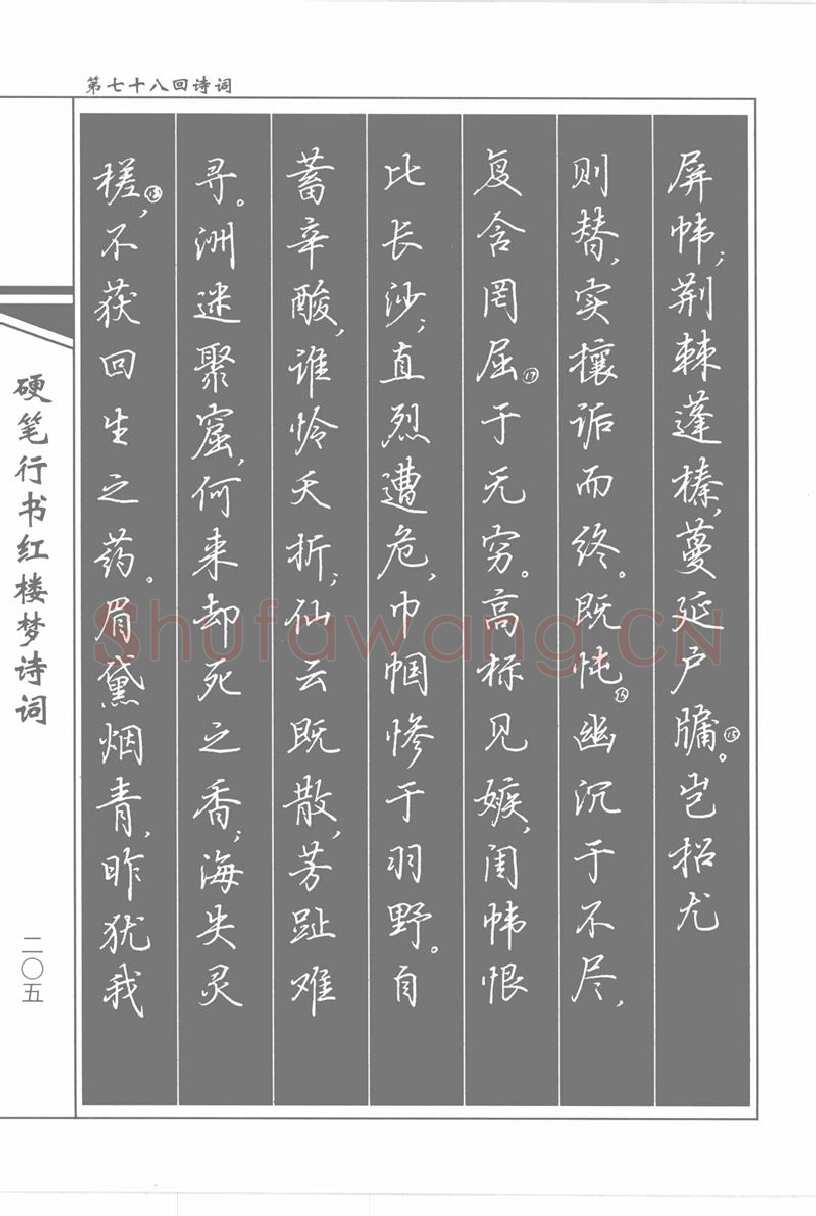 第七十八回诗词
屏帏；荆棘蓬榛，蔓延户牖⑮。岂招尤
则替，实攘诟而终。既忳⑯幽沉于不尽，
复含罔屈⑰于无穷。高标见嫉，闺帏恨
比长沙；直烈遭危，巾帼惨于羽野。自
蓄辛酸，谁怜夭折；仙云既散，芳趾难
寻。洲迷聚窟，何来却死之香；海失灵
槎⑱，不获回生之药。眉黛烟青，昨犹我
硬笔行书红楼梦诗词
二〇五
Shufawang.CN